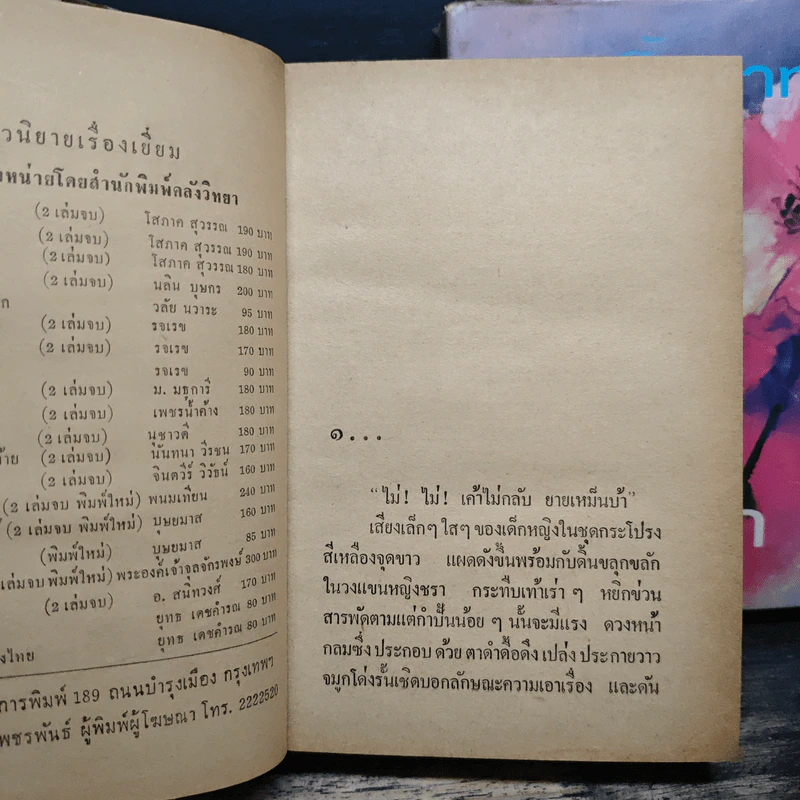 วนิยายเรื่องเยี่ยม
หน่ายโดยสำนักพิมพ์คลังวิทยา
(2 เล่มจบ) โสภาค สุวรรณ 190 บาท
(2 เล่มจบ) โสภาค สุวรรณ 190 บาท
(2 เล่มจบ) โสภาค สุวรรณ 180 บาท
(2 เล่มจบ) นลิน บุษกร 200 บาท
ก วลัย นวาระ 95 บาท
(2 เล่มจบ) รจเรข 180 บาท
(2 เล่มจบ) รจเรข 170 บาท
รจเรข 90 บาท
(2 เล่มจบ) ม. มธุการี 180 บาท
(2 เล่มจบ) เพชรน้ำค้าง 180 บาท
(2 เล่มจบ) นุชาวดี 180 บาท
้าย (2 เล่มจบ) นันทนา วีรชน 170 บาท
(2 เล่มจบ) จินตวีร์ วิวัธน์ 160 บาท
(2 เล่มจบ พิมพ์ใหม่) พนมเทียน 240 บาท
(2 เล่มจบ พิมพ์ใหม่) บุษยมาส 160 บาท
(พิมพ์ใหม่) บุษยมาส 85 บาท
เล่มจบ พิมพ์ใหม่) พระองค์เจ้าจุลจักรพงษ์ 300 บาท
(2 เล่มจบ) อ. สนิทวงศ์ 170 บาท
ยุทธ เดชคำรณ 80 บาท
งไทย ยุทธ เดชคำรณ 80 บาท
การพิมพ์ 189 ถนนบำรุงเมือง กรุงเทพฯ
พชรพันธ์ ผู้พิมพ์ผู้โฆษณา โทร. 2222520
๑...
“ไม่! ไม่! เค้าไม่กลับ ยายเหม็นบ้า”
เสียงเล็กๆ ใสๆ ของเด็กหญิงในชุดกระโปรง
สีเหลืองจุดขาว แผดดังขึ้นพร้อมกับดิ้นขลุกขลัก
ในวงแขนหญิงชรา กระทืบเท้าเร่า ๆ หยิกข่วน
สารพัดตามแต่กำปั้นน้อย ๆ นั้นจะมีแรง ดวงหน้า
กลมซึ่ง ประกอบ ด้วย ตาดำดื้อดึง เปล่ง ประกายวาว
จมูกโด่งรั้นเชิดบอกลักษณะความเอาเรื่อง และดัน